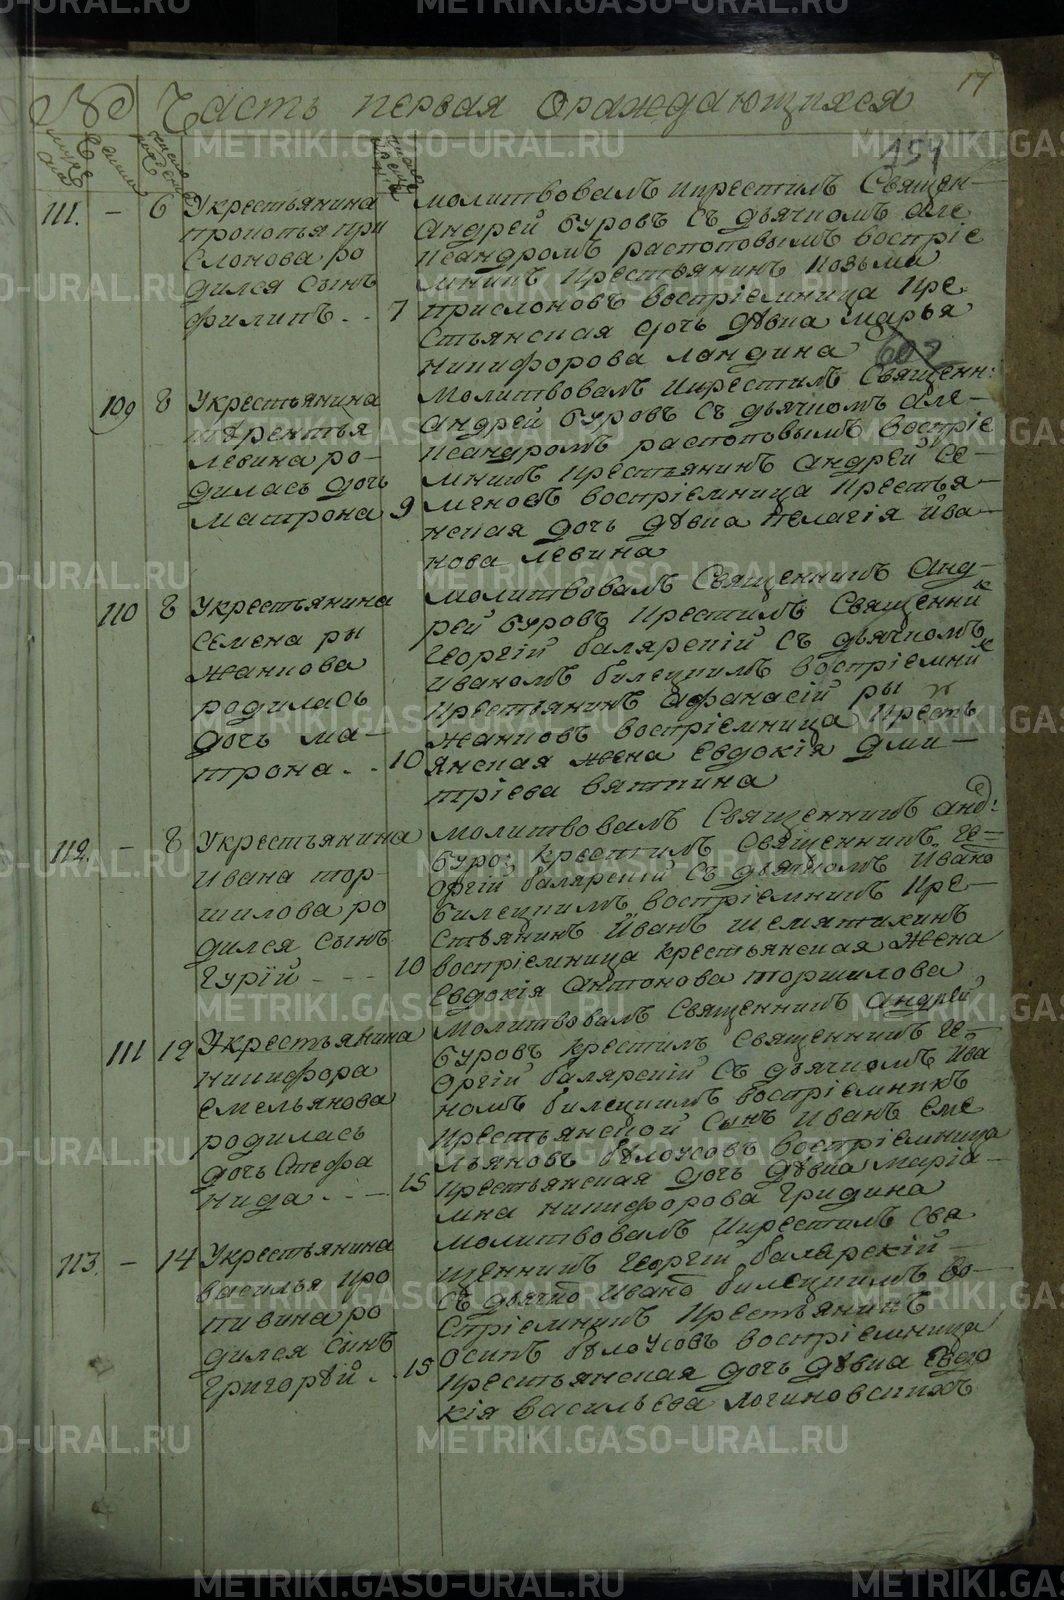 17
№ Часть первая о раждающихся
154
111. – 6 Укрестьянина
прокотья при
слонова ро
дился сынъ
филипъ . . 7
молитвовалъ икрестилъ Священ–
Андрей буровъ съ дьячкомъ але
ксандромъ распоповымъ восприе
мникъ крестьянинъ козьма
прислоновъ восприемница кре
стьянская дочь дѣвка марья
никифорова ландина
607
109 8 Укрестьянина
терентья
левина ро–
дилась дочь
матрона 9
молитвовалъ икрестилъ Священн:
андрей буровъ съ дьячкомъ але–
ксандромъ распоповымъ восприе
мникъ крестьянинъ андрей се–
меновъ восприемница крестья–
нская дочь дѣвка пелагія ива–
нова левина
110 8 Укрестьянина
семена ры
жанкова
родилась
дочь ма–
трона . . 10
молитвовалъ Священникъ анд–
рей буровъ крестилъ Священник
георгій балярскій съ дьячкомъ
иваномъ билецкимъ восприемник
крестьянинъ афанасій ры
жанковъ восприемница кресть
янская жена евдокія дми–
тріева вяткина
112. – 8 Укрестьянина
ивана тор–
шилова ро
дился сынъ
гурій – – – 10
молитвовалъ Священникъ анд:
буров крестилъ Священникъ ге–
оргій балярскій съ дьячкомъ ивано
билецкимъ восприемникъ кре–
стьянинъ Иванъ шемятихинъ
восприемница крестьянская жена
Евдокія антонова торшилова
111 12 Укрестьянина
никифора
емельянова
родилась
дочь стефа
нида . . – 15
молитвовалъ Священникъ андрей
буровъ крестилъ священникъ ге–
оргій балярскій съ дьячкомъ ива
номъ билецкимъ восприемникъ
крестьянской сынъ иванъ еме
льяновъ бѣлоусовъ восприемница
крестьянская дочь дѣвка маріа–
мна никифорова гридина
113. – 14 Укрестьянина
василья кро
пивина ро
дился сынъ
григорѣй . . 15
молитвовалъ икрестилъ свя
щенникъ георгій балярскій –
съ дьячко ивано билецкимъ во–
спріемникъ крестьянинъ
осипъ бѣлоусовъ восприемница
крестьянская дочь дѣвка евдо
кія васильева логиновскихъ
METRIKI.GASO-URAL.RU